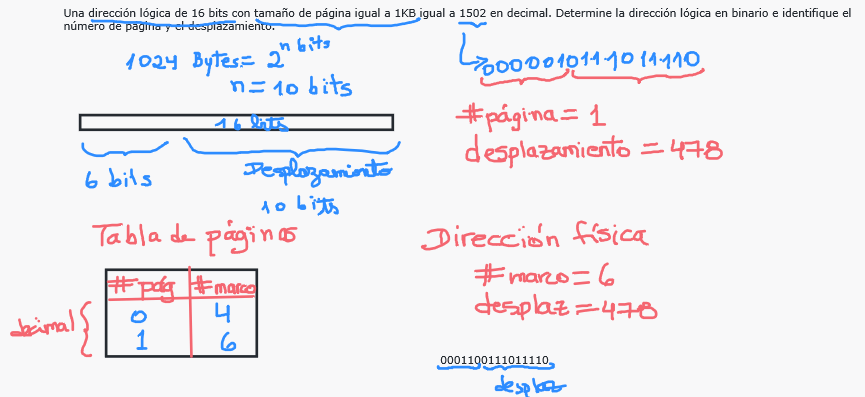 Una dirección lógica de 16 bits con tamaño de página igual a 1KB igual a 1502 en decimal. Determine la dirección lógica en binario e identifique el
número de página y el desplazamiento.
1024 Bytes = 2^n bits
n = 10 bits
0000010111011110
#página = 1
desplazamiento = 478
16 bits
6 bits
Desplazamiento
10 bits
Tabla de páginas
# pág # marco
0 4
1 6
decimal
Dirección física
# marco = 6
desplaz = 478
0001100111011110
desplaz